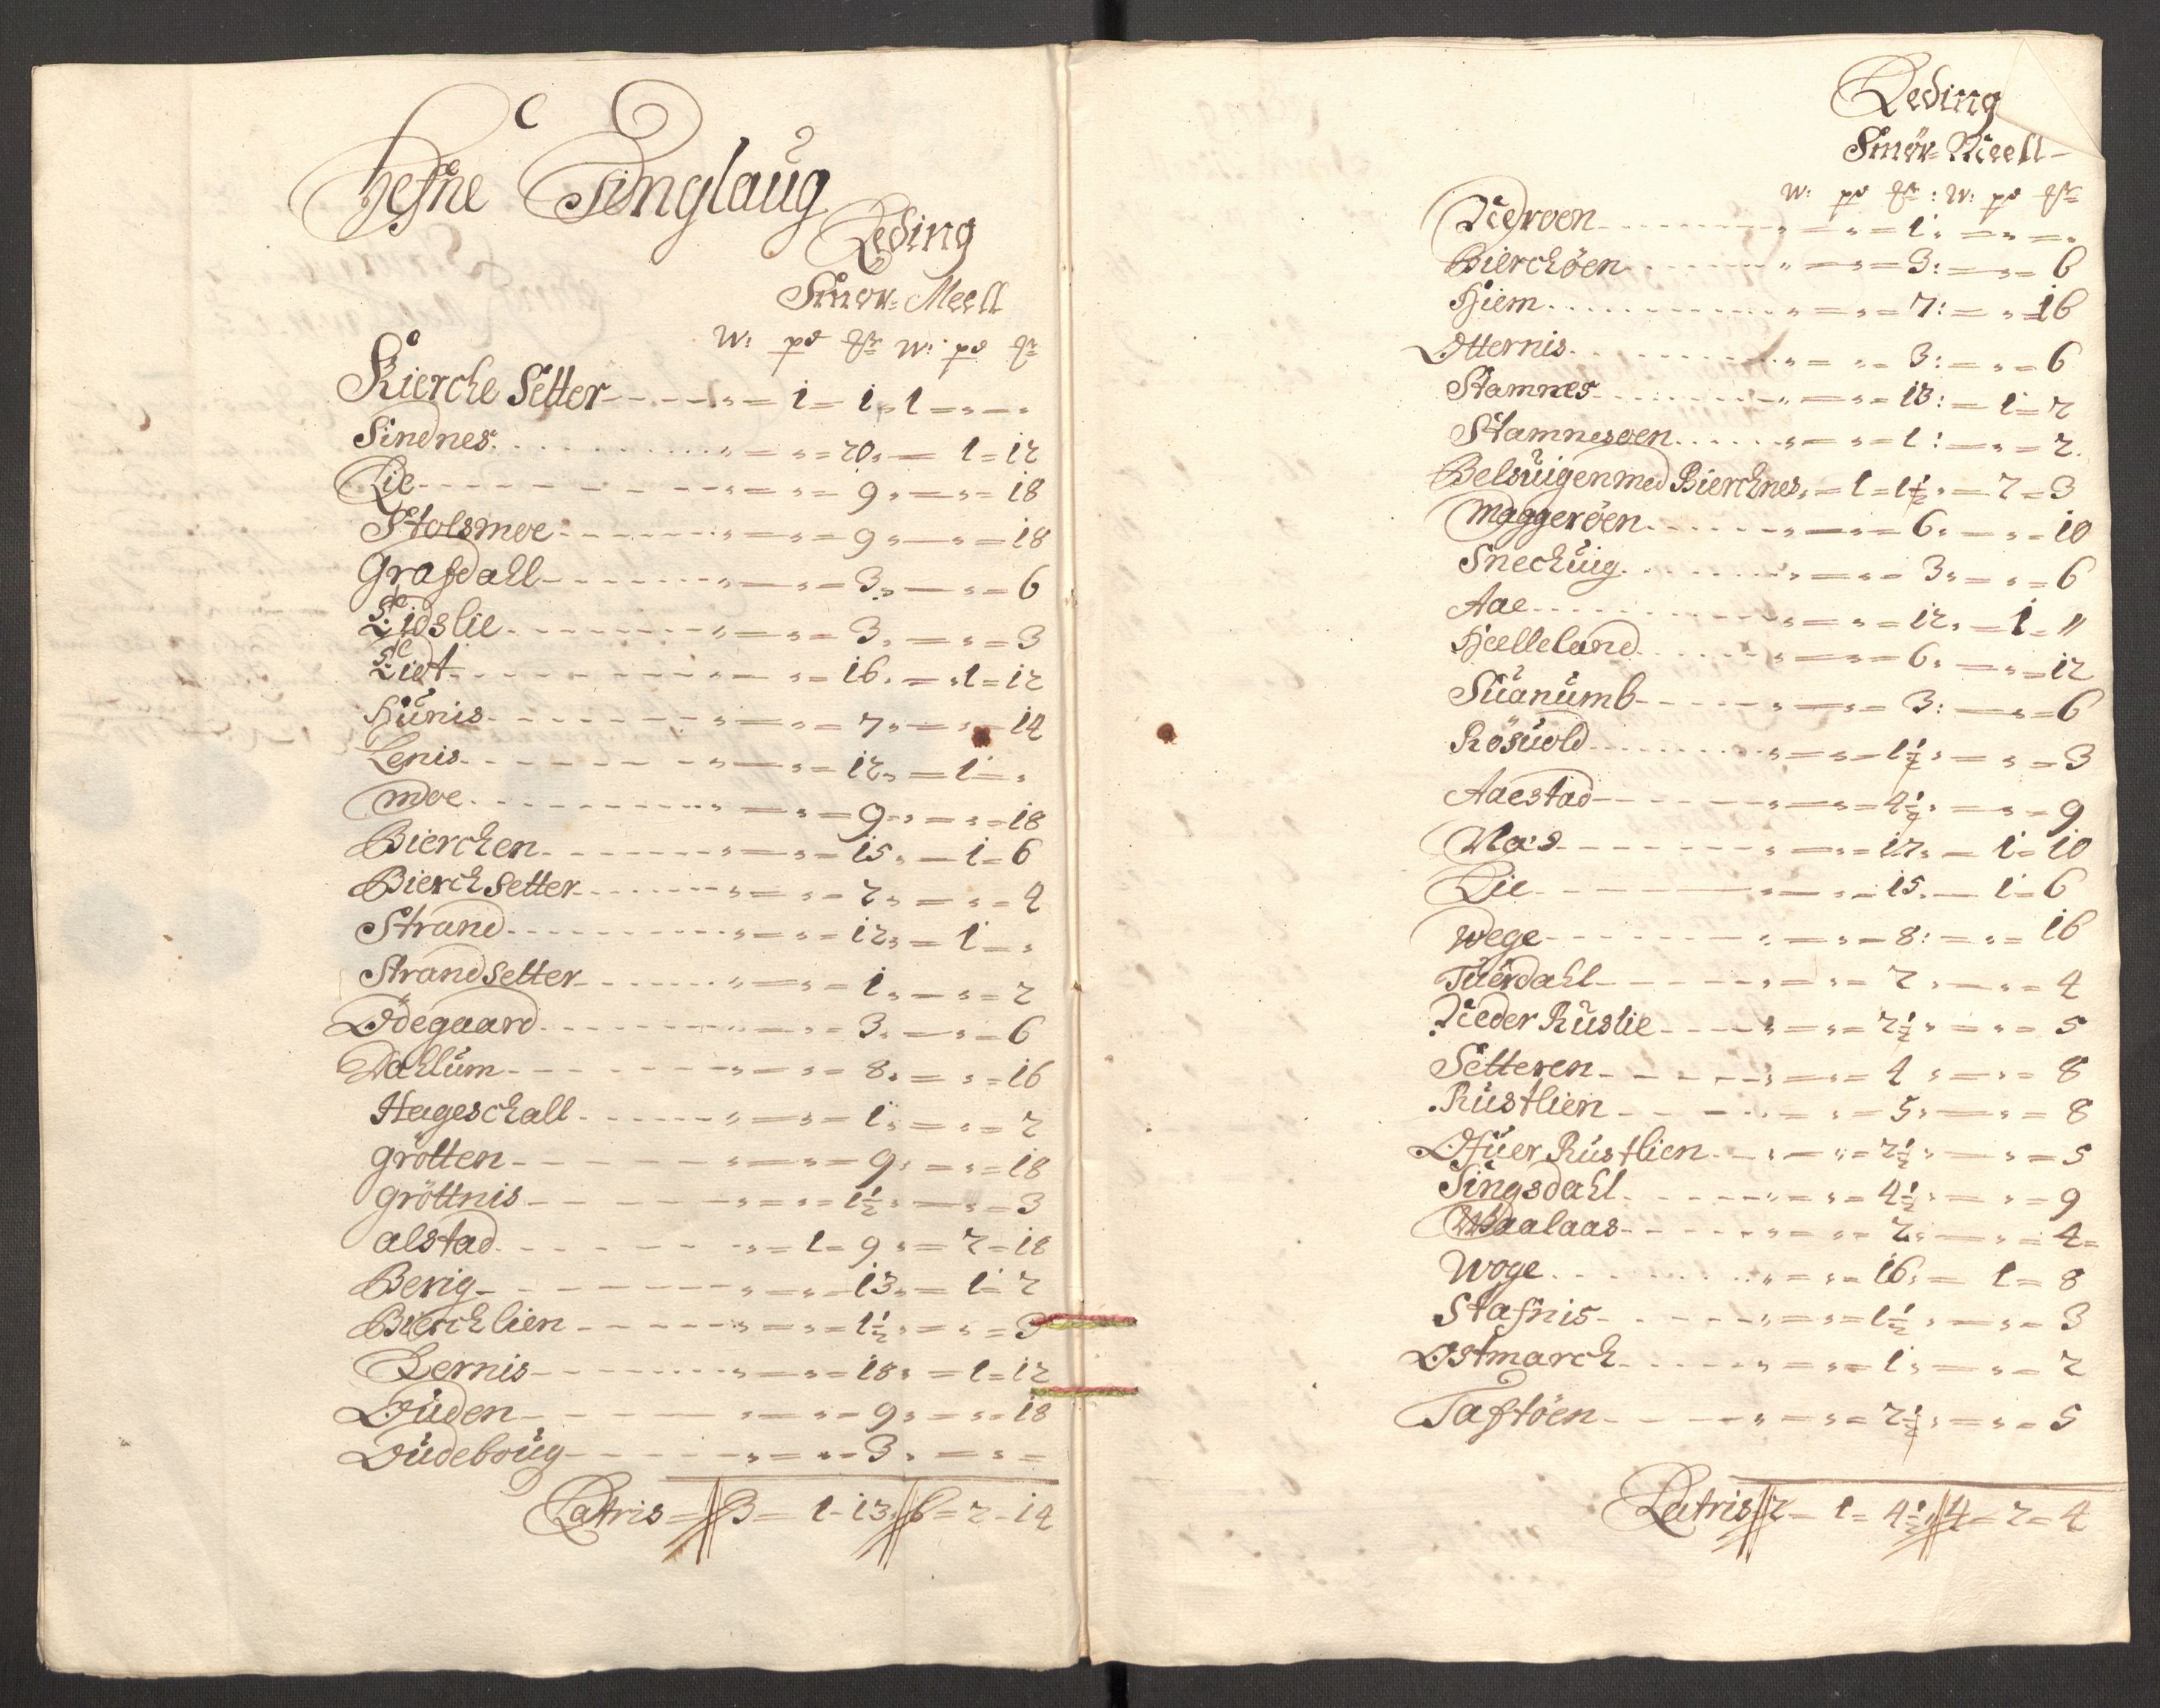 Hefne Tinglaug
Leding
Smör- Meell
W: pd ℔ W: pd ℔
Kierche Setter - - - - „ = 1 = 1 „ 1 = „ - „
Sindnes - - - - „ = „ = 20 „ = 1 = 12
Lie - - - - „ = „ = 9 „ = „ = 18
Stolsmoe - - - - „ = „ = 9 „ = „ = 18
Grafdall - - - - „ = „ = 3 „ = „ = 6
Lidslie - - - - „ = „ = 3 „ = „ = 3
Liet - - - - „ = „ = 16 „ = 1 = 12
Hünis - - - - „ = „ = 7 „ = „ = 14
Lenis - - - - „ = „ = 12 „ = 1 = „
Moe - - - - „ = „ = 9 „ = „ = 18
Bierchen - - - - „ = „ = 15 „ = 1 = 6
Bierch Setter - - - - „ = „ = 2 „ = „ = 4
Strand - - - - „ = „ = 12 „ = 1 = „
Strandsetter - - - - „ = „ = 1 „ = „ = 2
Ödegaard - - - - „ = „ = 3 „ = „ = 6
Dahlum - - - - „ = „ = 8 „ = „ = 16
Hageschall - - - - „ = „ = 1 „ = „ = 2
Grötten - - - - „ = „ = 9 „ = „ = 18
Gröttnis - - - - „ = „ = 1½ „ = „ = 3
alstad - - - - „ = 1 = 9 „ = 2 = 18
Berig - - - - „ = „ = 13 „ = 1 = 2
Bierchlien - - - - „ = „ = 1½ „ = „ = 3
Lernis - - - - „ = „ = 18 „ = 1 = 12
Oüden - - - - „ = „ = 9 „ = „ = 18
Oüdeboüg - - - - „ = „ = 3 „ = „ =
Latris = 3 = 1 - 13 „ 6 = 2 - 14
Leding
Smör- Meell
W: pd ℔ : W: pd ℔
Nedroen - - - - „ = „ = 1 „ = „ = „
Bierchöen - - - - „ = „ = 3 : = „ = 6
Hiem - - - - „ = „ = 7 : = „ = 16
Otternis - - - - „ = „ = 3 : = „ = 6
Stamnes - - - - „ = „ = 13 : = 1 = 2
Stamnesoen - - - - „ = „ = 1 : = „ = 2
Belsüigen med Bierchnes „ = 1 = 1½ „ = 2 = 3
Maggeröen - - - - „ = „ = 6 „ = „ = 10
Snechüig - - - - „ = „ = 3 „ = „ = 6
Aae - - - - „ = „ = 12 „ = 1 = „
Heelleland - - - - „ = „ = 6 „ = „ = 12
Süanümb - - - - „ = „ = 3 : = „ = 6
Rösüold - - - - „ = „ = 1½ „ = „ = 3
Aaestad - - - - „ = „ = 4½ „ = „ = 9
Næs - - - - „ = „ = 17 „ = 1 = 10
Lie - - - - „ = „ = 15 „ = 1 = 6
Wege - - - - „ = „ = 8 : = „ = 16
Tüerdahl - - - - „ = „ = 2 „ = „ = 4
Neder Rüslie - - - - „ = „ = 2½ „ = „ = 5
Setteren - - - - „ = „ = 4 „ = „ = 8
Rüstlien - - - - „ = „ = 5 „ = „ = 8
Ofüer Rüstlien - - - - „ = „ = 2½ „ = „ = 5
Singsdahl - - - - „ = „ = 4½ „ = „ = 9
Waalaas - - - - „ = „ = 2 „ = „ = 4
Woge - - - - „ = „ = 16 „ = 1 = 8
Stafnis - - - - „ = „ = 1½ „ = „ = 3
Ostmarch - - - - „ = „ = 1 „ = „ = 2
Taftöen - - - - „ = „ = 2½ „ = „ = 5
Latris 2 = 1 = 4½ „ 4 = 2 = 4